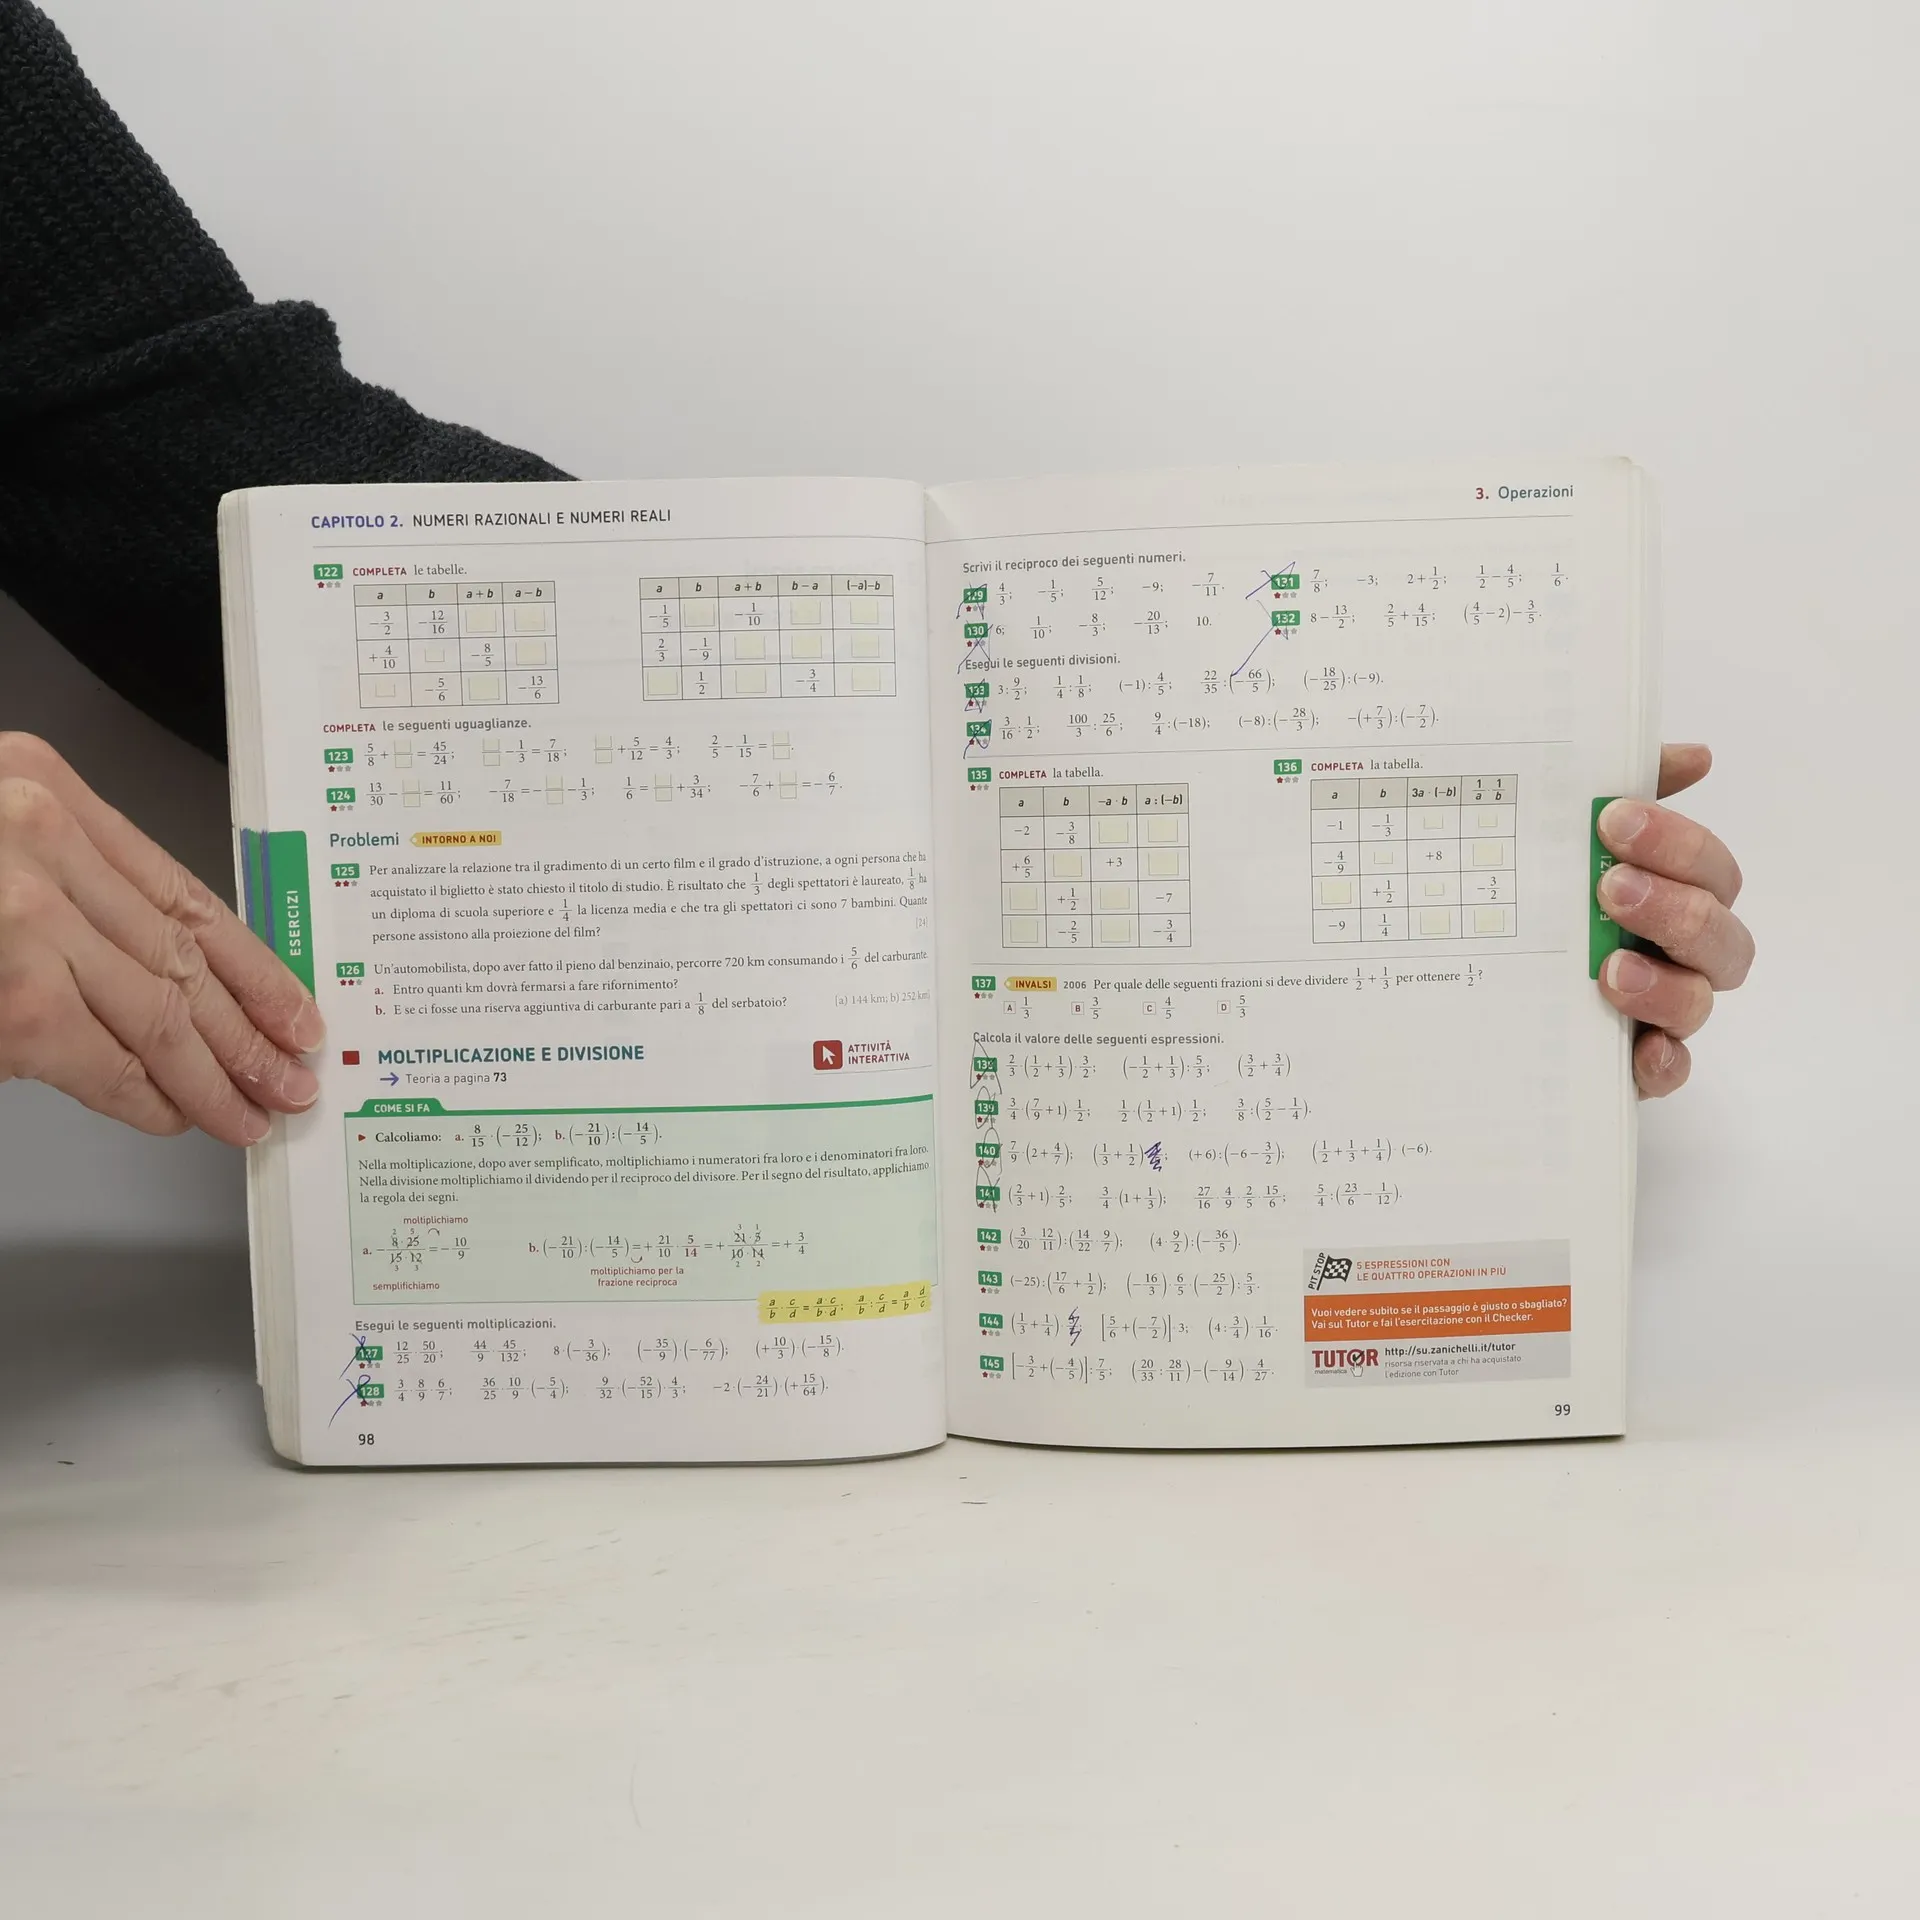 CAPITOLO 2. NUMERI RAZIONALI E NUMERI REALI
122 COMPLETA le tabelle.
a b a + b a − b
−3/2 −12/16
+4/10 −8/5
−5/6 −13/6
a b a + b b − a (−a)−b
−1/5 −1/10
2/3 −1/9
1/2 −3/4
COMPLETA le seguenti uguaglianze.
123 5/8 + = 45/24; − 1/3 = 7/18; + 5/12 = 4/3; 2/5 − 1/15 = .
124 13/30 − = 11/60; −7/18 = − − 1/3; 1/6 = + 3/34; −7/6 + = −6/7.
Problemi INTORNO A NOI
125 Per analizzare la relazione tra il gradimento di un certo film e il grado d'istruzione, a ogni persona che ha
acquistato il biglietto è stato chiesto il titolo di studio. È risultato che 1/3 degli spettatori è laureato, 1/8 ha
un diploma di scuola superiore e 1/4 la licenza media e che tra gli spettatori ci sono 7 bambini. Quante
persone assistono alla proiezione del film? [24]
126 Un'automobilista, dopo aver fatto il pieno dal benzinaio, percorre 720 km consumando i 5/6 del carburante.
a. Entro quanti km dovrà fermarsi a fare rifornimento?
b. E se ci fosse una riserva aggiuntiva di carburante pari a 1/8 del serbatoio? [a) 144 km; b) 252 km]
MOLTIPLICAZIONE E DIVISIONE
→ Teoria a pagina 73
ATTIVITÀ
INTERATTIVA
COME SI FA
Calcoliamo: a. 8/15 · (−25/12); b. (−21/10) : (−14/5).
Nella moltiplicazione, dopo aver semplificato, moltiplichiamo i numeratori fra loro e i denominatori fra loro.
Nella divisione moltiplichiamo il dividendo per il reciproco del divisore. Per il segno del risultato, applichiamo
la regola dei segni.
moltiplichiamo
a. − 8 · 25 / 15 · 12 = −10/9
semplifichiamo
b. (−21/10) : (−14/5) = + 21/10 · 5/14 = + 21 · 5 / 10 · 14 = + 3/4
moltiplichiamo per la
frazione reciproca
a/b · c/d = a · c / b · d; a/b : c/d = a/b · d/c
Esegui le seguenti moltiplicazioni.
127 12/25 · 50/20; 44/9 · 45/132; 8 · (−3/36); (−35/9) · (−6/77); (+10/3) · (−15/8).
128 3/4 · 8/9 · 6/7; 36/25 · 10/9 · (−5/4); 9/32 · (−52/15) · 4/3; −2 · (−24/21) · (+15/64).
98
ESERCIZI
3. Operazioni
Scrivi il reciproco dei seguenti numeri.
129 4/3; −1/5; 5/12; −9; −7/11.
130 6; 1/10; −8/3; −20/13; 10.
131 7/8; −3; 2 + 1/2; 1/2 − 4/5; 1/6.
132 8 − 13/2; 2/5 + 4/15; (4/5 − 2) − 3/5.
Esegui le seguenti divisioni.
133 3 : 9/2; 1/4 : 1/8; (−1) : 4/5; 22/35 : (−66/5); (−18/25) : (−9).
134 3/16 : 1/2; 100/3 : 25/6; 9/4 : (−18); (−8) : (−28/3); −(+7/3) : (−7/2).
135 COMPLETA la tabella.
a b −a · b a : (−b)
−2 −3/8
+6/5 +3
+1/2 −7
−2/5 −3/4
136 COMPLETA la tabella.
a b 3a · (−b) 1/a · 1/b
−1 −1/3
−4/9 +8
+1/2 −3/2
−9 1/4
137 INVALSI 2006 Per quale delle seguenti frazioni si deve dividere 1/2 + 1/3 per ottenere 1/2?
A 1/3 B 3/5 C 4/5 D 5/3
Calcola il valore delle seguenti espressioni.
138 2/3 · (1/2 + 1/3) · 3/2; (−1/2 + 1/3) : 5/3; (3/2 + 3/4)
139 3/4 · (7/9 + 1) · 1/2; 1/2 · (1/2 + 1) · 1/2; 3/8 : (5/2 − 1/4).
140 7/9 · (2 + 4/7); (1/3 + 1/2) ; (+6) : (−6 − 3/2); (1/2 + 1/3 + 1/4) · (−6).
141 (2/3 + 1) · 2/5; 3/4 · (1 + 1/3); 27/16 · 4/9 · 2/5 · 15/6; 5/4 : (23/6 − 1/12).
142 (3/20 · 12/11) : (14/22 · 9/7); (4 · 9/2) : (−36/5).
143 (−25) : (17/6 + 1/2); (−16/3) · 6/5 · (−25/2) : 5/3.
144 (1/3 + 1/4) · ; [5/6 + (−7/2)] · 3; (4 : 3/4) · 1/16.
145 [−3/2 + (−4/5)] : 7/5; (20/33 : 28/11) − (−9/14) · 4/27.
PIT STOP
5 ESPRESSIONI CON
LE QUATTRO OPERAZIONI IN PIÙ
Vuoi vedere subito se il passaggio è giusto o sbagliato?
Vai sul Tutor e fai l'esercitazione con il Checker.
TUTOR
matematica
http://su.zanichelli.it/tutor
risorsa riservata a chi ha acquistato
l'edizione con Tutor
99